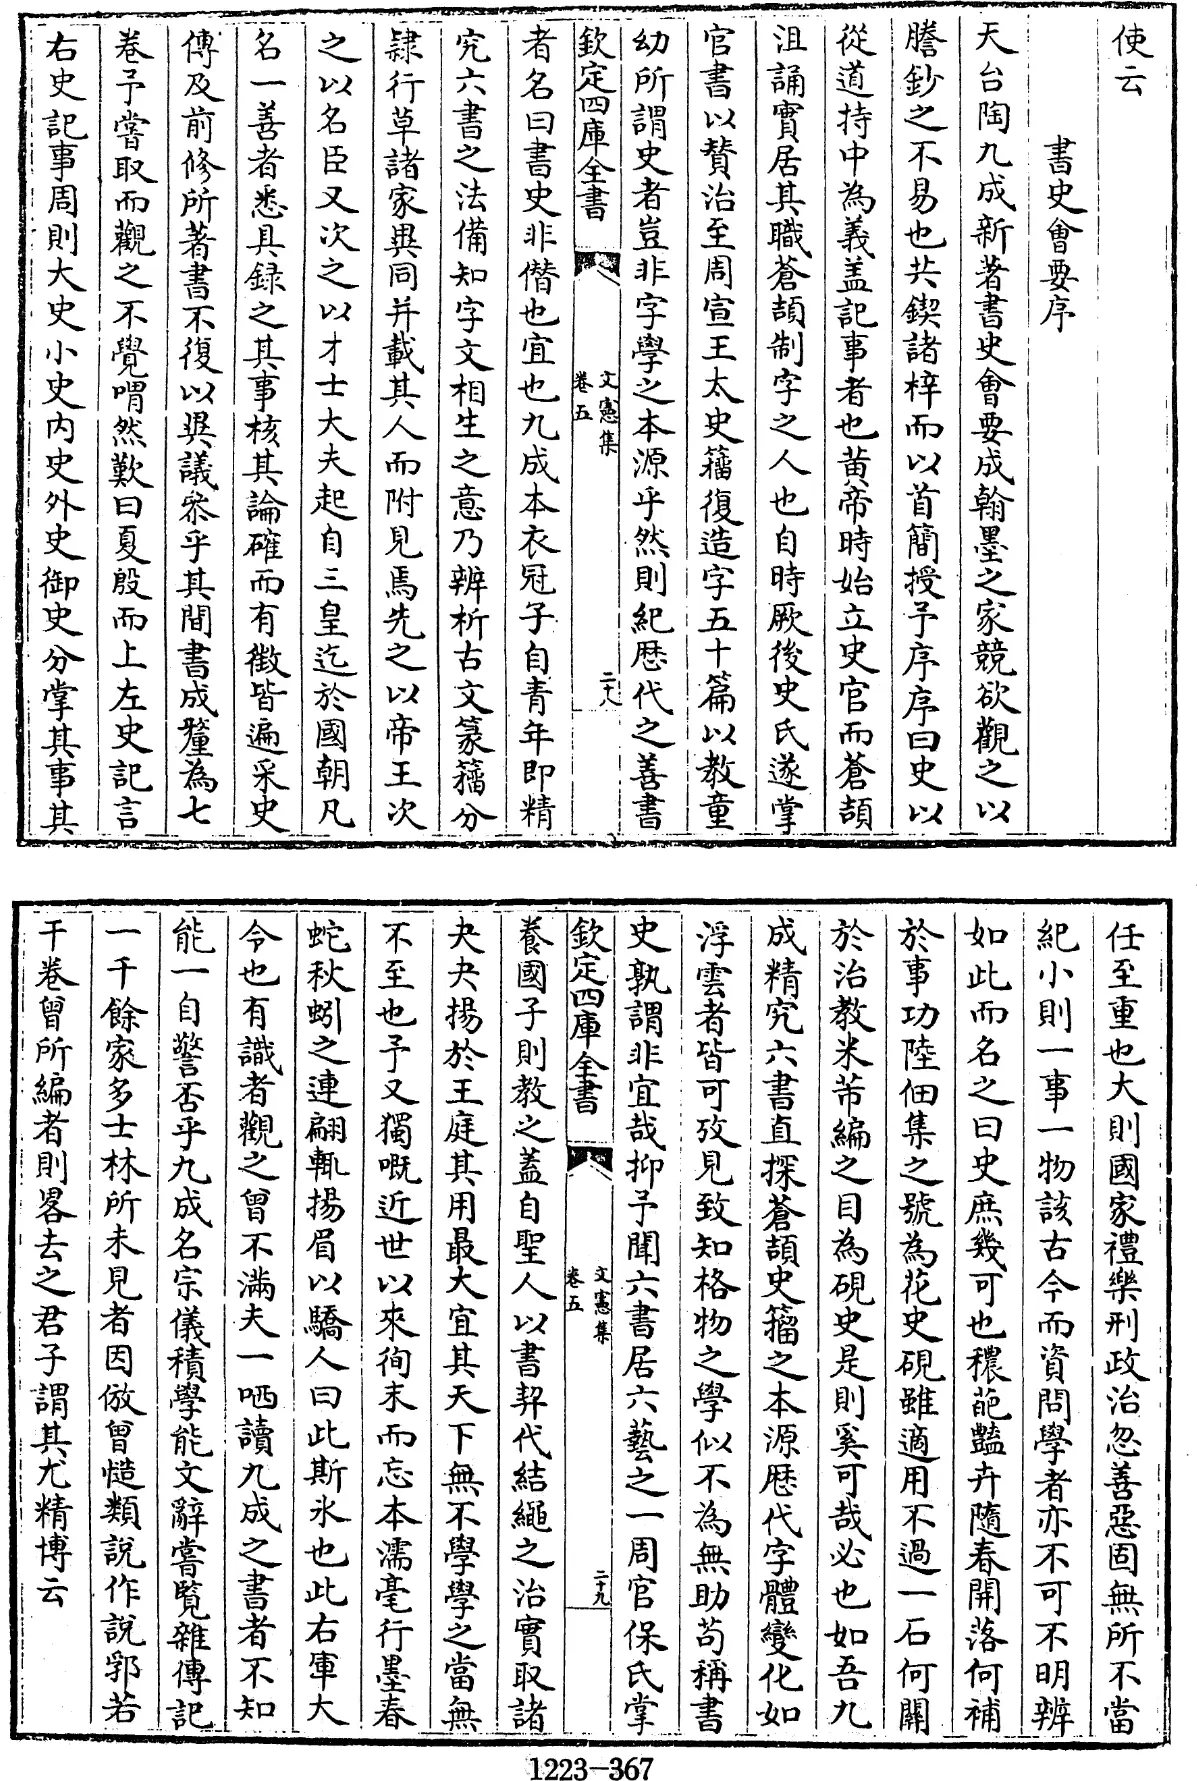 使云
書史㑹要序
天台陶九成新著書史㑹要成翰墨之家競欲觀之以
謄鈔之不易也共鍥諸梓而以首簡授予序序曰史以
從道持中為義盖記事者也黄帝時始立史官而蒼頡
沮誦實居其職蒼頡制字之人也自時厥後史氏遂掌
官書以賛治至周宣王太史籕復造字五十篇以教童
幼所謂史者豈非字學之本源乎然則紀歴代之善書
欽定四庫全書
文憲集
卷五
二十八
者名曰書史非僭也宜也九成本衣冠子自青年即精
究六書之法備知字文相生之意乃辨析古文篆籕分
隷行草諸家異同并載其人而附見焉先之以帝王次
之以名臣又次之以才士大夫起自三皇迄於國朝凡
名一善者悉具録之其事核其論確而有徴皆遍采史
傳及前修所著書不復以異議叅乎其間書成釐為七
巻予嘗取而觀之不覺喟然歎曰夏殷而上左史記言
右史記事周則大史小史内史外史御史分掌其事其
任至重也大則國家禮樂刑政治忽善惡固無所不當
紀小則一事一物該古今而資問學者亦不可不明辨
如此而名之曰史庶幾可也穠葩豔卉隨春開落何補
於事功陸佃集之號為花史硯雖適用不過一石何關
於治教米芾編之目為硯史是則奚可哉必也如吾九
成精究六書直探蒼頡史籕之本源歴代字體變化如
浮雲者皆可攷見致知格物之學似不為無助茍稱書
史孰謂非宜哉抑予聞六書居六藝之一周官保氏掌
欽定四庫全書
文憲集
卷五
二十九
養國子則教之蓋自聖人以書契代結繩之治實取諸
夬夬揚於王庭其用最大宜其天下無不學學之當無
不至也予又獨嘅近世以來徇末而忘本濡毫行墨春
蛇秋蚓之連翩輒揚眉以驕人曰此斯氷也此右軍大
令也有識者觀之曾不滿夫一哂讀九成之書者不知
能一自警否乎九成名宗儀積學能文辭嘗覧雜傳記
一千餘家多士林所未見者因倣曾慥類説作説郛若
干卷曾所編者則畧去之君子謂其尤精博云
1223—367